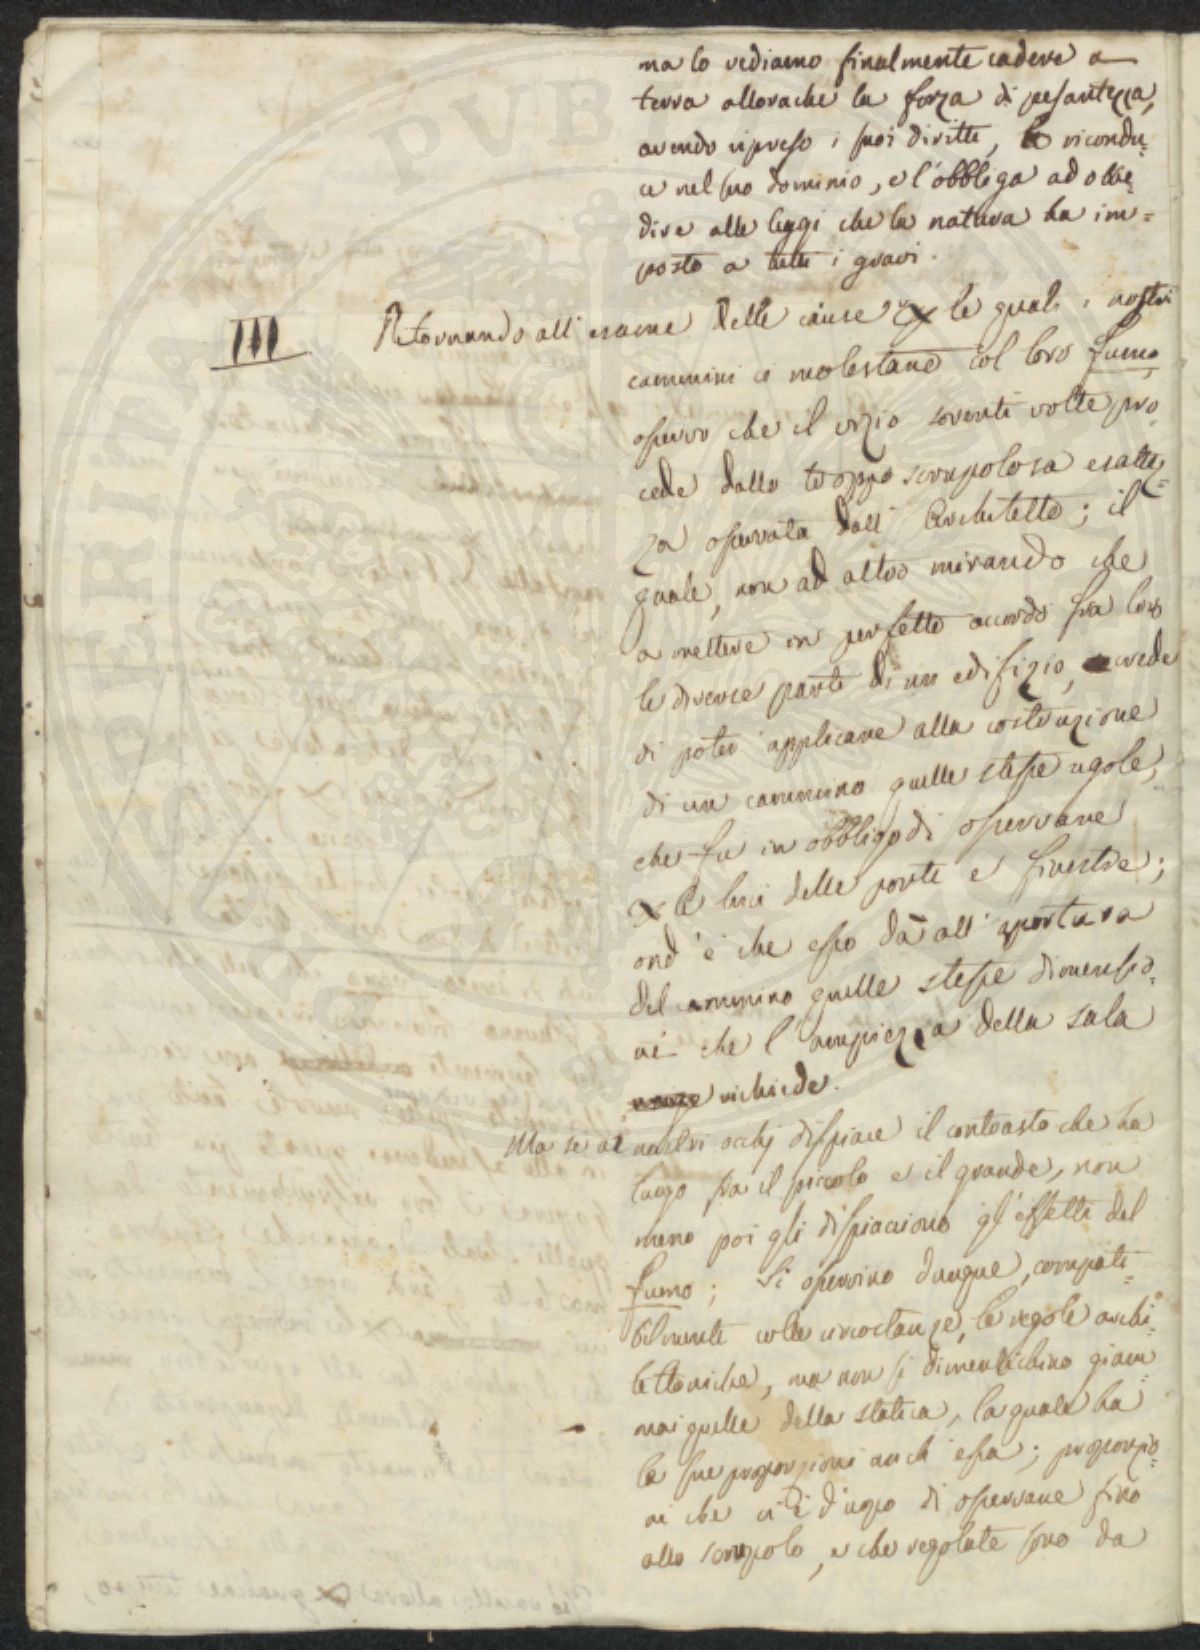 ma lo vediamo finalmente cadere a
terra allorache la forza di pesantezza,
avendo ripreso i suoi diritti, lo ricondu=
ce nel suo dominio, e l'obbliga ad obbe=
dire alle leggi che la natura ha im=
posto a tutti i gravi.
III
Ritornando all'esame delle cause per le quali i nostri
cammini ci molestano col loro fumo,
osservo che il vizio soventi volte pro=
cede dalla troppo scrupolosa esattez=
za osservata dall'Architetto; il
quale, non ad altro mirando che
a mettere in perfetto accordo fra loro
le diverse parti di un edifizio, crede
di poter applicare alla costruzione
di un cammino quelle stesse regole,
che fu in obbligo di osservare
per le luci delle porte e finestre;
ond'è che esso dà all'apertura
del cammino quelle stesse dimensio=
ni che l'ampiezza della sala
richiede.
Ma se ai nostri occhj dispiace il contrasto che ha
luogo fra il piccolo e il grande, non
meno poi gli dispiacciono gl'effetti del
fumo; Si osservino dunque, compati=
bilmente colle circostanze, le regole archi=
tettoniche, ma non si dimentichino giam=
mai quelle della statica, la quale ha
le sue proporzioni anch'essa; proporzio=
ni che ci è d'uopo di osservare fino
allo scrupolo, e che regolate sono da